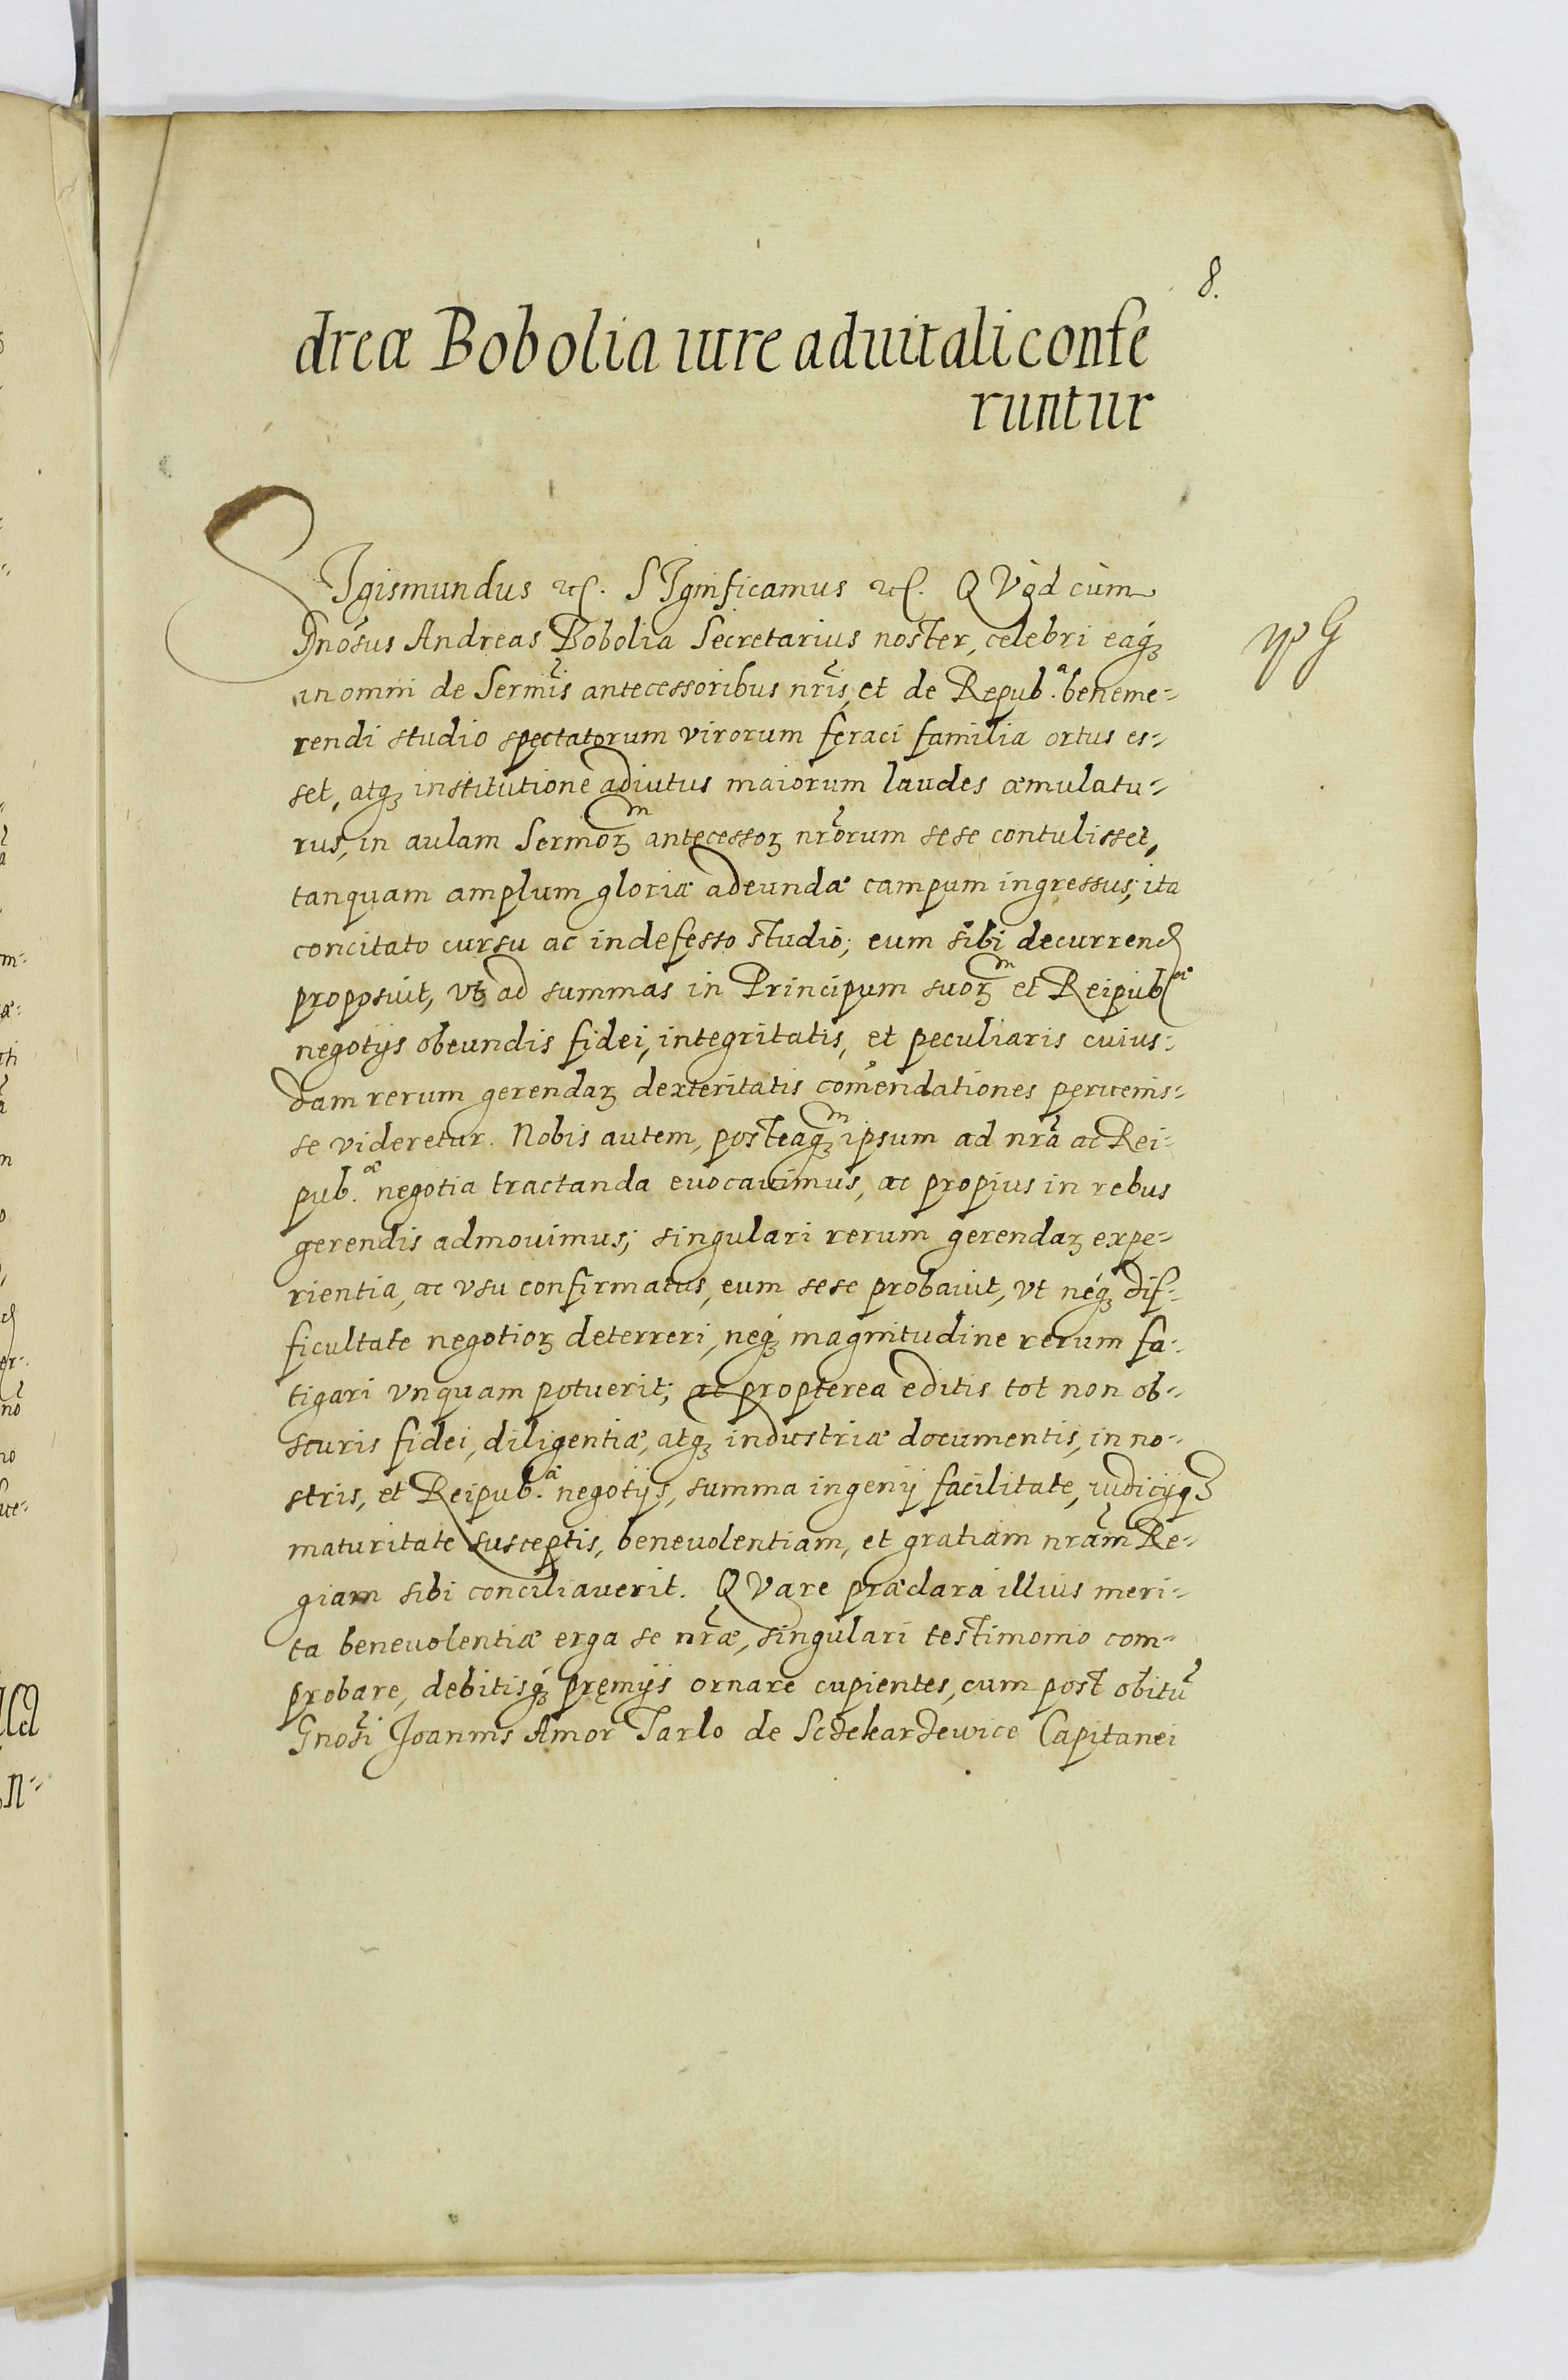 8.
dreæ Bobolia iure aduitali confe
runtur
SIgismundus etc. SIgnificamus etc. QVòd cùm
Gnosus Andreas Bobolia Secretarius noster, celebri eaq́ꝫ
in omni de Sermis antecessoribus nris, et de Repub.ᵃ beneme-
rendi studio spectatorum virorum feraci familia ortus es-
set, atqꝫ institutione adiutus maiorum laudes æmulatu-
rus, in aulam Sermoꝝᵐ antecessoꝝ nrorum sese contulisset,
tanquam amplum gloriæ adeundæ campum ingressus; ita
concitato cursu ac indefesso studio; eum sibi decurrend
proposuit, vt ad summas in Principum suoꝝᵐ et Reipubᵃᵉ
negotijs obeundis fidei, integritatis, et peculiaris cuius-
dam rerum gerendaꝝ dexteritatis comendationes peruenis-
se videretur. Nobis autem, posteaqꝫᵐ ipsum ad nra ac Rei-
pub.ᵃᵉ negotia tractanda euocauimus, ac propius in rebus
gerendis admouimus; singulari rerum gerendaꝝ expe-
rientia, ac vsu confirmatus, eum sese probauit, vt néqꝫ dif-
ficultate negotioꝝ deterreri, neq́ꝫ magnitudine rerum fa-
tigari vnquam potuerit; ac propterea editis tot non ob-
scuris fidei, diligentiæ, atqꝫ industriæ documentis, in no-
stris, et Reipub.ᵃᵉ negotijs, summa ingenij facilitate, iudicijqꝫ
maturitate susceptis, beneuolentiam, et gratiam nram Re-
giam sibi conciliauerit. QVare præclara illius meri-
ta beneuolentiæ erga se nræ, singulari testimonio com-
probare, debitisq́ꝫ pręmijs ornare cupientes, cum post obitu
Gnosi Joannis Amor Tarlo de Sczekarzewice Capitanei